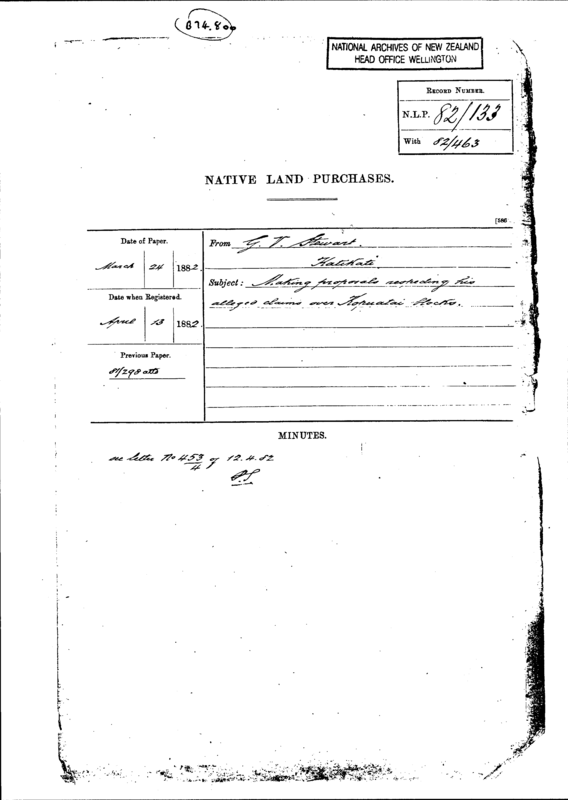 B74.800
NATIONAL ARCHIVES OF NEW ZEALAND
HEAD OFFICE WELLINGTON
RECORD NUMBER.
N.L.P. 82/133
With 82/463
NATIVE LAND PURCHASES.
[586
Date of Paper.
March 24 1882
Date when Registered.
April 13 1882.
Previous Paper.
81/298 atts
From G. V. Stewart.
Katikati
Subject: Making proposals respecting his
alleged claims over Kopuatai Blocks.
MINUTES.
see letter No 453/4 of 12.4.82